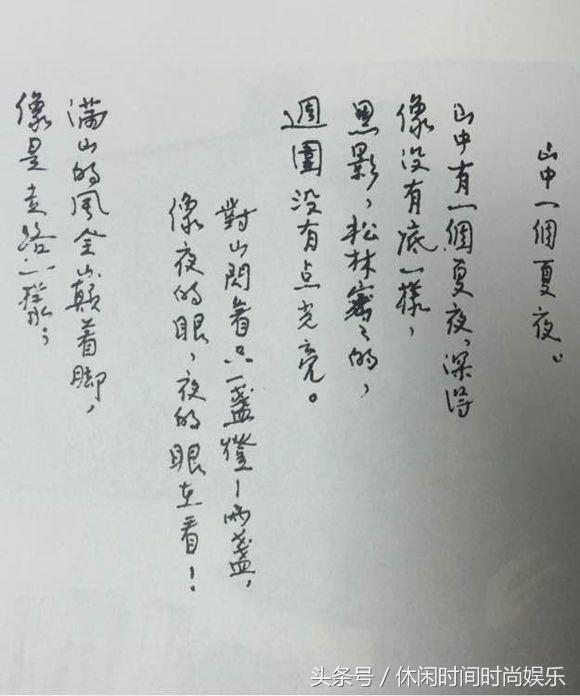 山中一個夏夜。
山中有一個夏夜,深得
像沒有底一樣,
黑影,松林密々的,
週圍沒有点光亮。
對山閃着只一盞燈—兩盞,
像夜的眼,夜的眼在看!
滿山的風全山顛着脚,
像是走路一樣;
头条号 / 休闲时间时尚娱乐